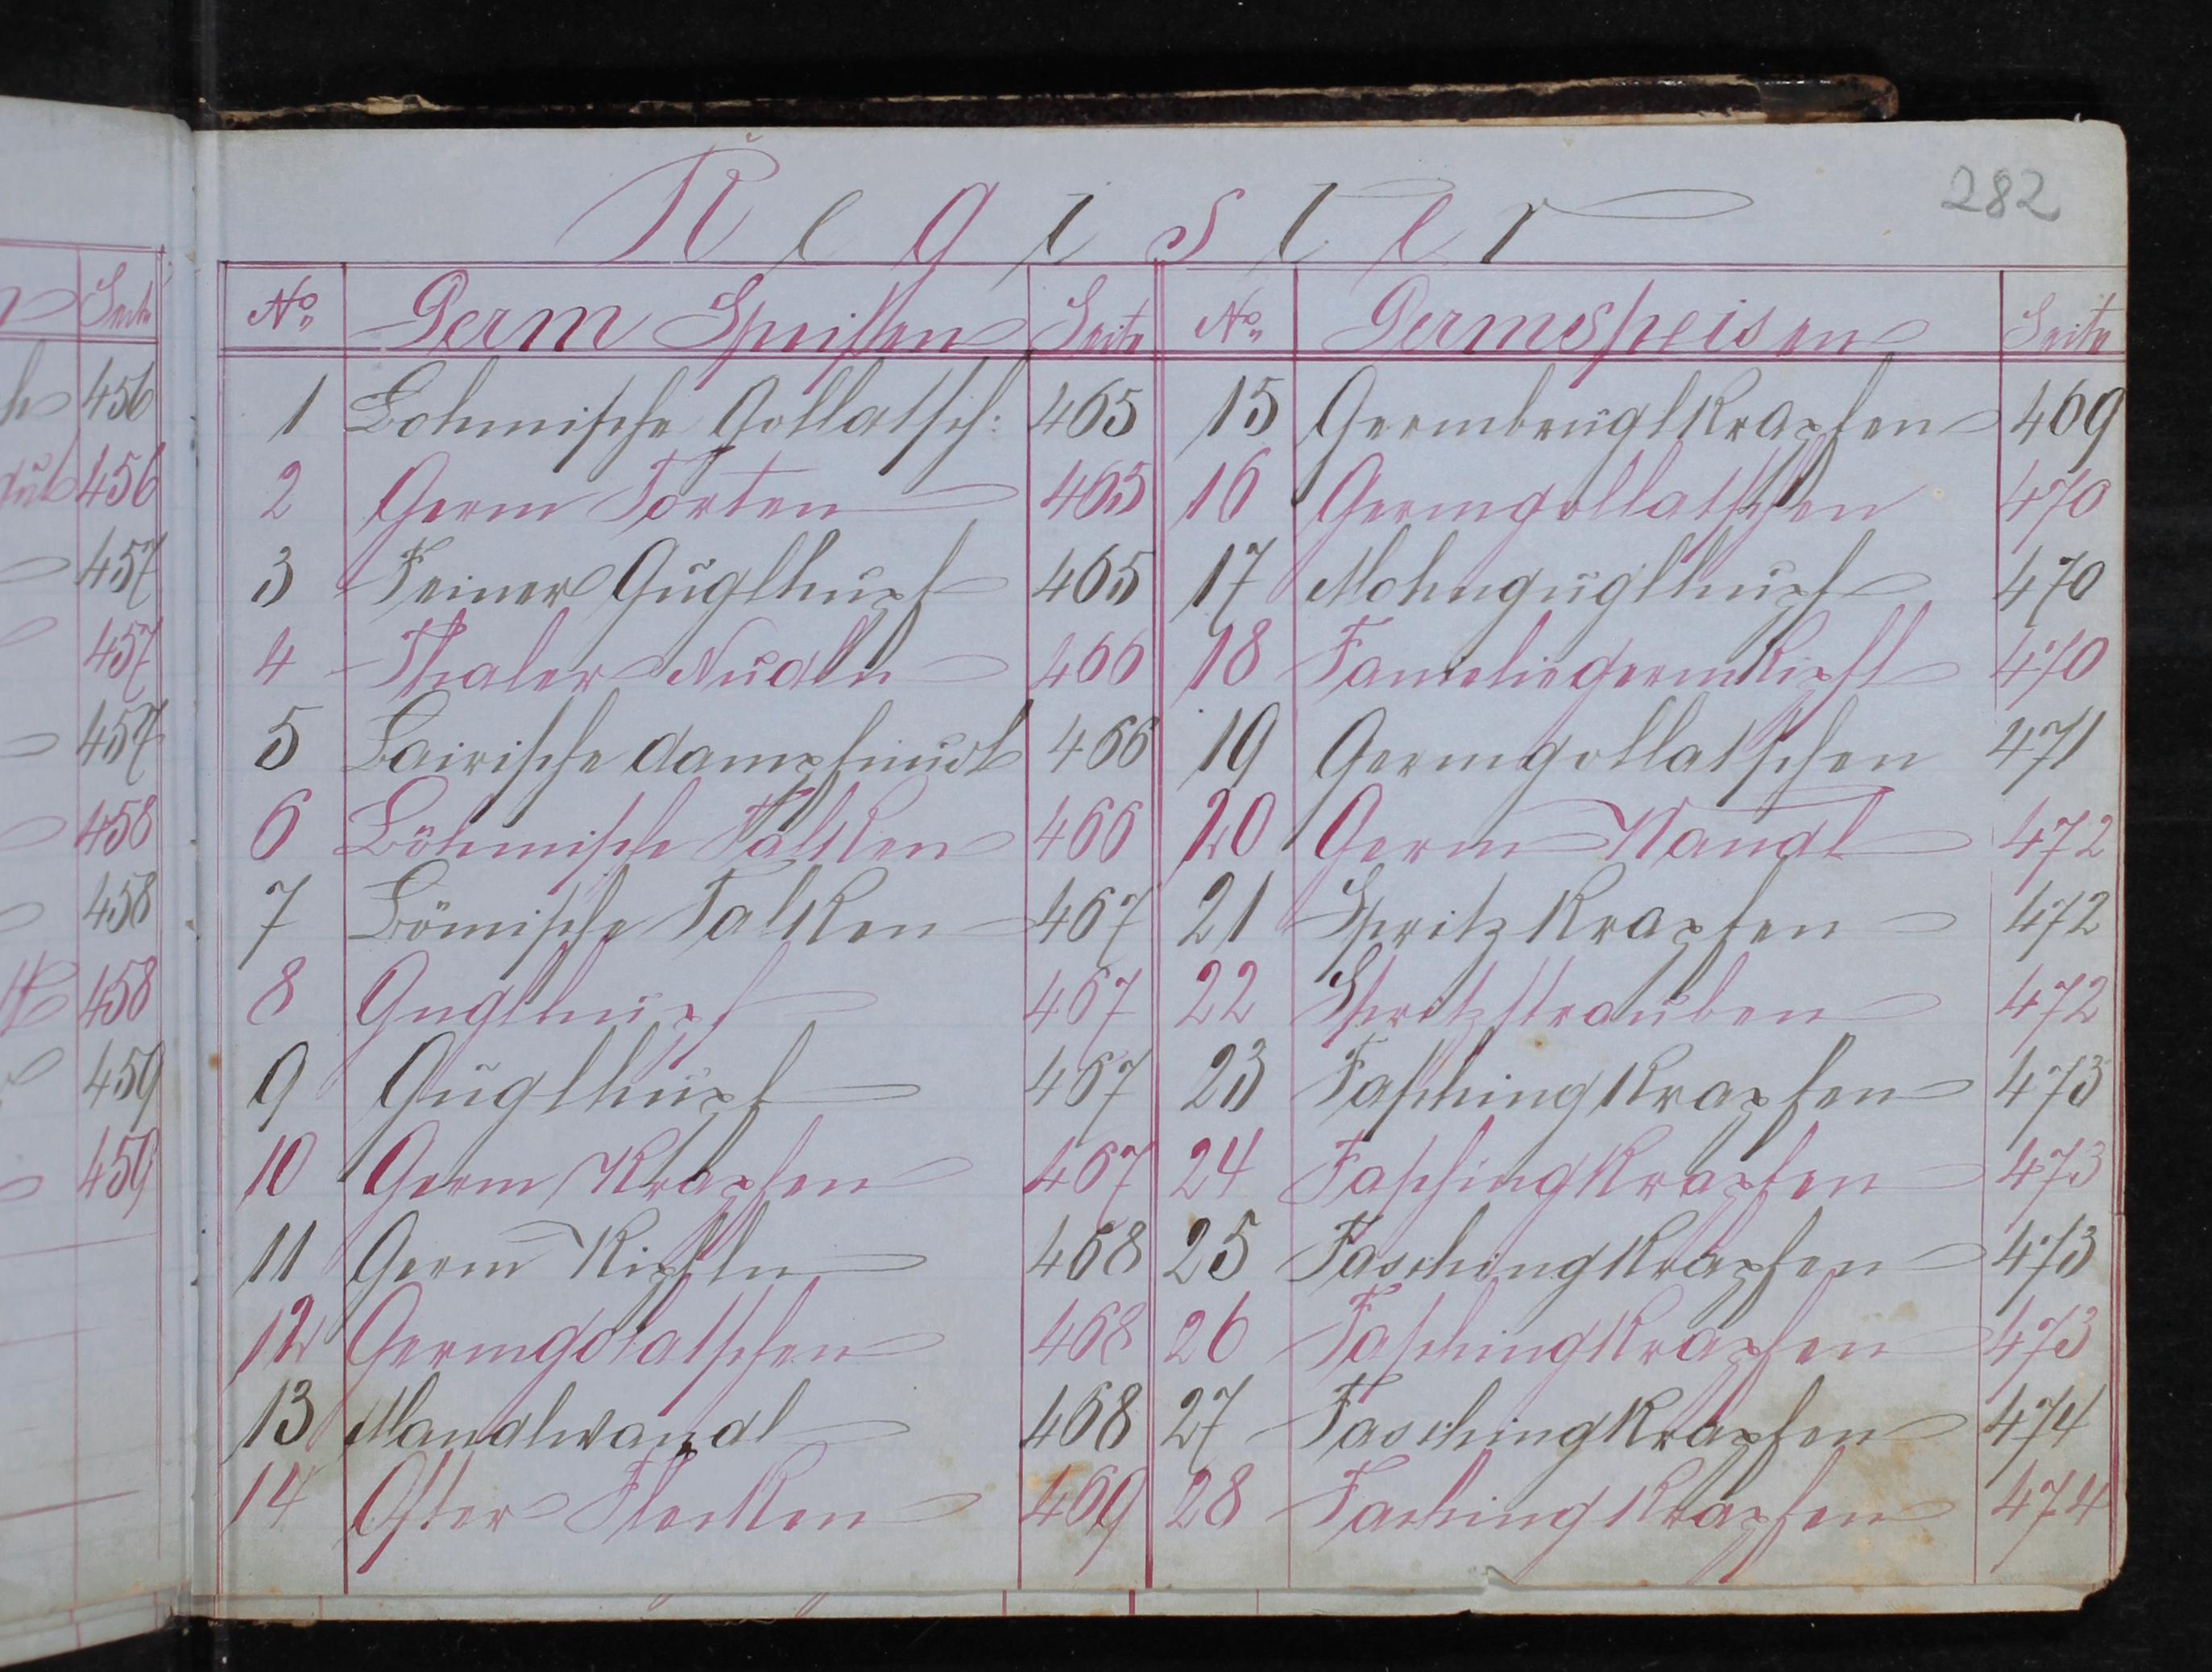 282
Register
No. Germ Speißen Seite No. Germspeisen Seite
1 Bohmische Gollatsch: 465 15 Germbrüglkrapfen 469
2 Germ Torten 465 16 Germgollatschen 470
3 Feiner Guglhupf 465 17 Mohnguglhupf 470
4 Thaler Nudln 466 18 Fameliegermkipfl 470
5 Bairische dampfnudl 466 19 Germgollatschen 471
6 Böhmische Talken 466 20 Germ Wandl 472
7 Bömische Talken 467 21 Spritzkrapfen 472
8 Guglhupf 467 22 Spritzstrauben 472
9 Guglhupf 467 23 Faschingkrapfen 473
10 Germ Krapfen 467 24 Faschingkrapfen 473
11 Germ Kipfln 468 25 Faschingkrapfen 473
12 Germgolatschen 468 26 Faschingkrapfen 473
13 Mandlwandl 468 27 Faschingkrapfen 474
14 Oster Flecken 469 28 Faschingkrapfen 474
Seite
456
456
457
457
457
458
458
458
459
459